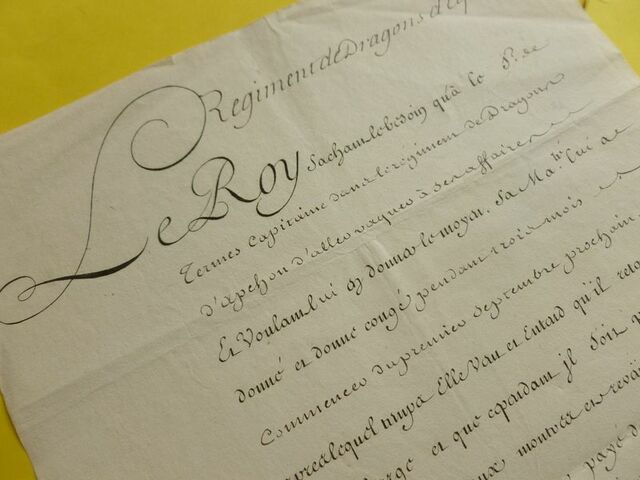 Regiment de Dragons d'Ap
Le Roy sachant le besoin qu'a le Sr. de
Termes Capitaine dans le régiment de Dragons
d'Apchon d'aller vaquer à ses affaires
Et Voulant lui en donner le moyen, Sa Maté. lui a
donné et donne congé pendant trois mois à
commencer du premier septembre prochain
apres lequel temps Elle Veut et Entend qu'il reto
charge et que cependant il soit p
aux montres et revü
payé d